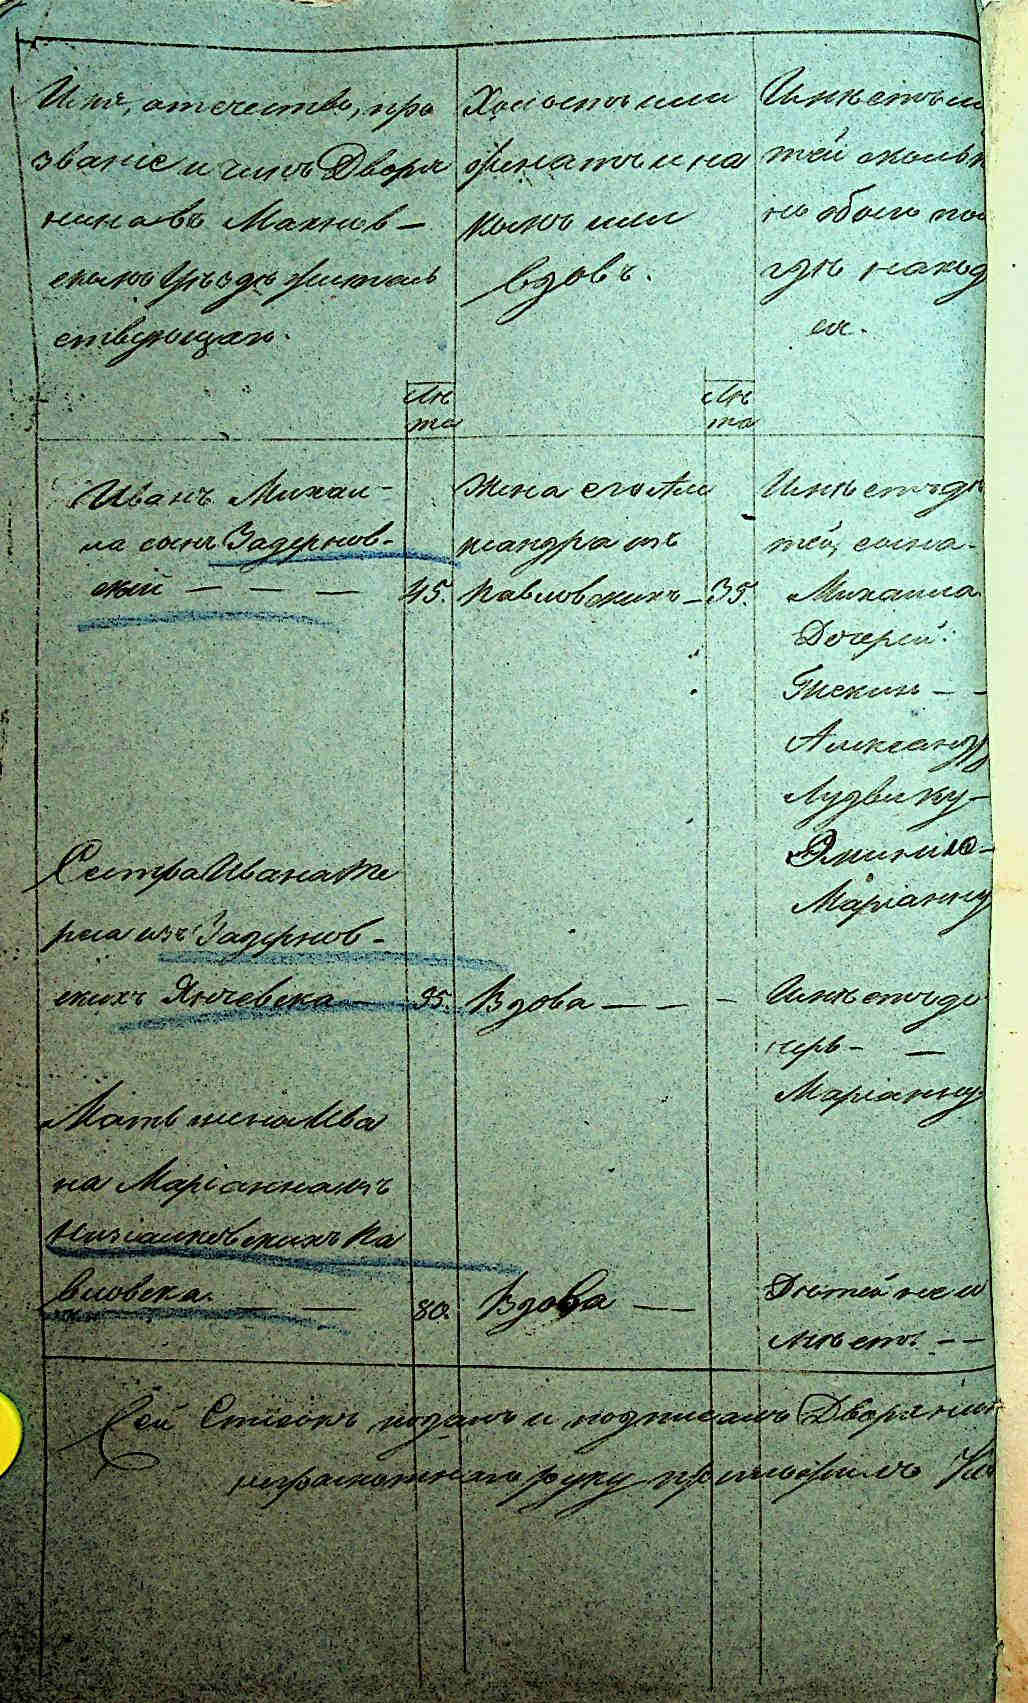 Имя, отечество, про
званіе и чинъ Дворя
нина въ Махнов-
скомъ Уѣздѣ жительст
ствующаго.
Лѣ
та
Холостъ или
женатъ и на
комъ или
вдовъ.
Лѣ
та
Имѣетъ ли
тей сколь
ко обоего по
гдѣ наход
ся.
Иванъ Михаи-
ла сынъ Задернов-
скій — — — 45.
Жена его Але
ксандра изъ
Павловскихъ — 35.
Имѣетъ дѣ
тей, сына-
Михаила
Дочерей:
Теклю — —
Александру
Людвику —
Эмилію —
Маріанну
Сестра Ивана Те
реса изъ Задернов-
скихъ Янчевска — 35.
Вдова — — —
Имѣетъ до
черь — —
Маріанну
Мать жена Ива
на Маріанна изъ
Павловска. — — 80.
Вдова —
Дѣтей не и
мѣетъ — —
Сей Списокъ подалъ и подписалъ Дворянин
руку приложилъ